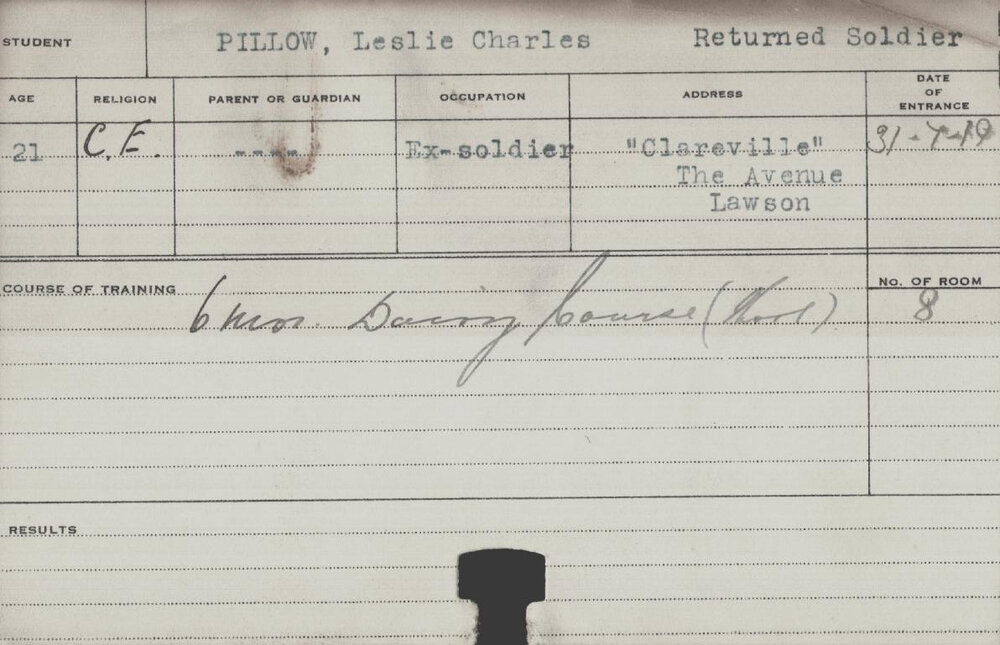 STUDENT PILLOW, Leslie Charles Returned Soldier
AGE RELIGION PARENT OR GUARDIAN OCCUPATION ADDRESS DATE OF ENTRANCE
21 C.E. ---- Ex-soldier "Clareville" 31-7-19
The Avenue
Lawson
COURSE OF TRAINING NO. OF ROOM
6 mos. Dairy Course 8
RESULTS